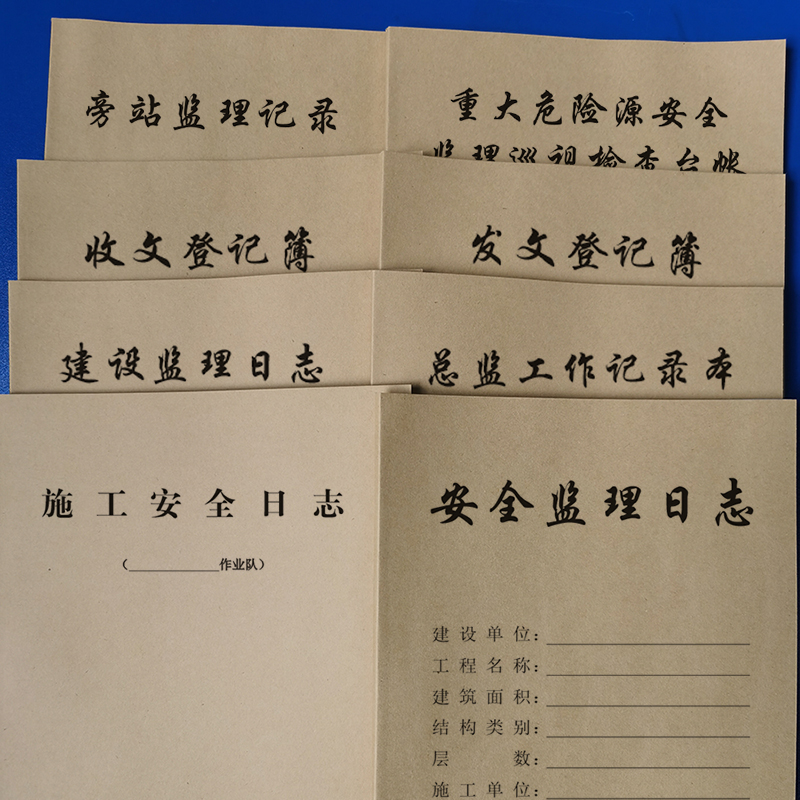 旁站监理记录
重大危险源安全
监理巡视检查台帐
收文登记簿
发文登记簿
建设监理日志
总监工作记录本
施工安全日志
（____________作业队）
安全监理日志
建设单位：
工程名称：
建筑面积：
结构类别：
层数：
施工单位：